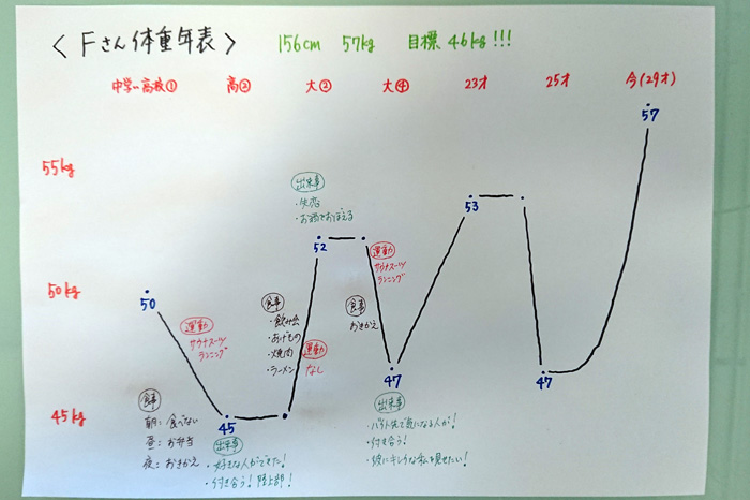 〈 Fさん体重年表 〉 156cm 57kg 目標 46kg!!!
中学〜高校① 高② 大③ 大④ 23才 25才 今(29才)
57
55kg
出来事
・失恋
・お酒でおぼえる
53
52
運動
サウナスーツ
ランニング
50kg
50
食事
・飲み会
・あげもの
・焼肉
・ラーメン
運動
なし
食事
おきかえ
運動
サウナスーツ
ランニング
47
47
45kg
45
食事
朝:食べない
昼:お弁当
夜:おきかえ
出来事
・好きな人ができた!
・付き合う!陸上部!
出来事
・バイト先で気になる人が!
・付き合う!
・彼にキレイな私を見せたい!